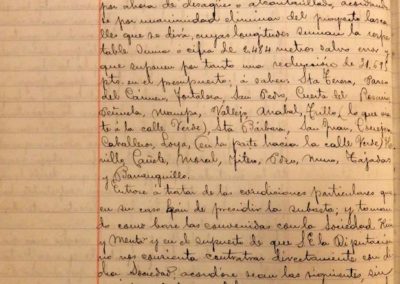 por ahora de desagüe o alcantarillado, acordando
se por unanimidad eliminar del proyecto las ca
lles que se dirá, cuyas longitudes suman la respe
table suma o cifra de 2.484 metros salvo error
que suponen por tanto una reducción de
pts. en el presupuesto; a saber: Sta Teresa, Paseo
del Carmen, Fortaleza, San Pedro, Cuesta del
Peñuela, Vallejo, Anabal, Trillo, (lo que es
té a la calle Verde), Sta Bárbara, San Juan,
Caballero, Loya, (en la parte hacia la calle Verde)
Cañete, Moral, Pozo, Muro, Tajadas
y Barranquillo.
Entrose a tratar de las condiciones particulares que
en su caso han de presidir la subasta; y toman
do como base las convenidas con la Sociedad
y en el supuesto de que S.E. la Diputación
no nos consienta contratar directamente con di
cha Sociedad, acordóse sean las siguientes, sin